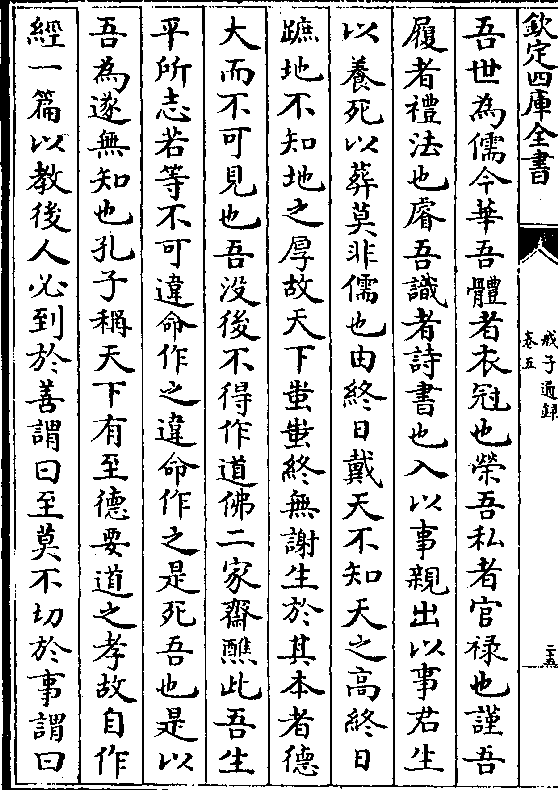 欽定四庫全書
戒子通録
卷五
二五
吾世為儒今華吾體者衣冠也榮吾私者官禄也謹吾
履者禮法也睿吾識者詩書也入以事親出以事君生
以養死以葬莫非儒也由終日戴天不知天之高終日
蹠地不知地之厚故天下蚩蚩終無謝生於其本者德
大而不可見也吾没後不得作道佛二家齋醮此吾生
平所志若等不可違命作之違命作之是死吾也是以
吾為遂無知也孔子稱天下有至德要道之孝故自作
經一篇以教後人必到於善謂曰至莫不切於事謂曰